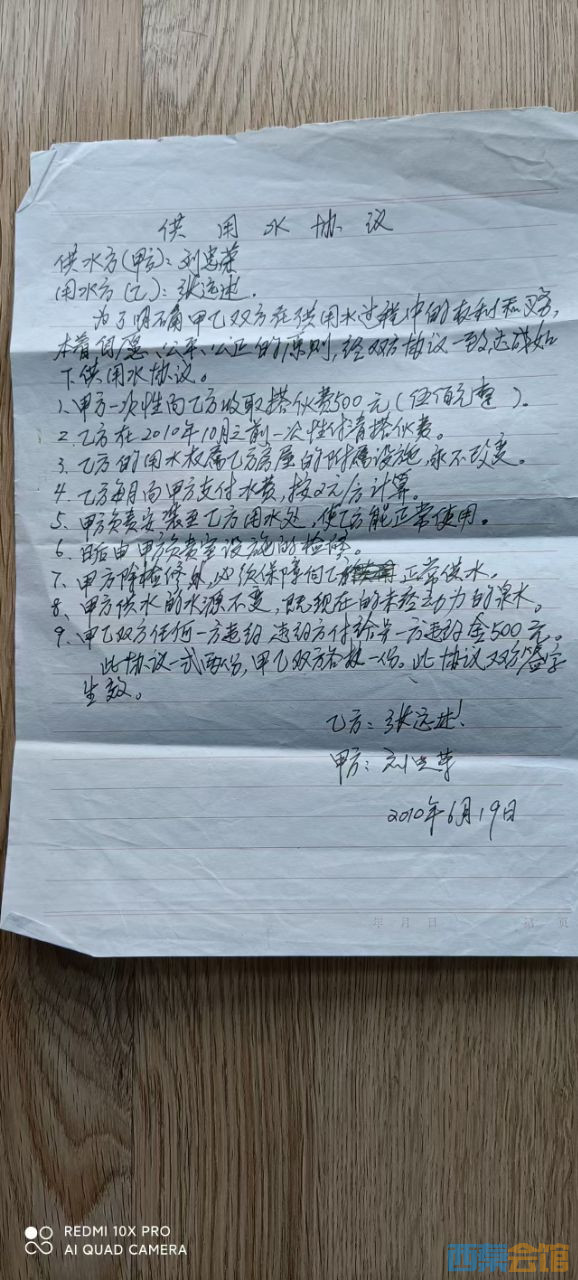 供用水协议
供水方(甲方):刘忠荣
用水方(乙):张远述.
为了明确甲乙双方在供用水过程中的权利和义务,
本着自愿、公平、公正的原则,经双方协议一致,达成如
下供用水协议。
1、甲方一次性向乙方收取搭伙费500元(伍佰元整)。
2、乙方在2010年10月之前一次性付清搭伙费。
3、乙方的用水权属乙方房屋的附属设施,永不改变。
4、乙方每月向甲方支付水费,按2元/方计算。
5、甲方负责安装至乙方用水处,使乙方能正常使用。
6、日后由甲方负责室设施的检修。
7、甲方除检修外,必须保障向乙方正常供水。
8、甲方供水的水源不变,既现在的未经动力的泉水。
9、甲乙双方任何一方违约 违约方付给另一方违约金500元。
此协议一式两份,甲乙双方各执一份。此协议双方签字
生效。
乙方:张远述
甲方:刘忠荣
2010年6月19日
年 月 日
页
REDMI 10X PRO
AI QUAD CAMERA
西祠会馆